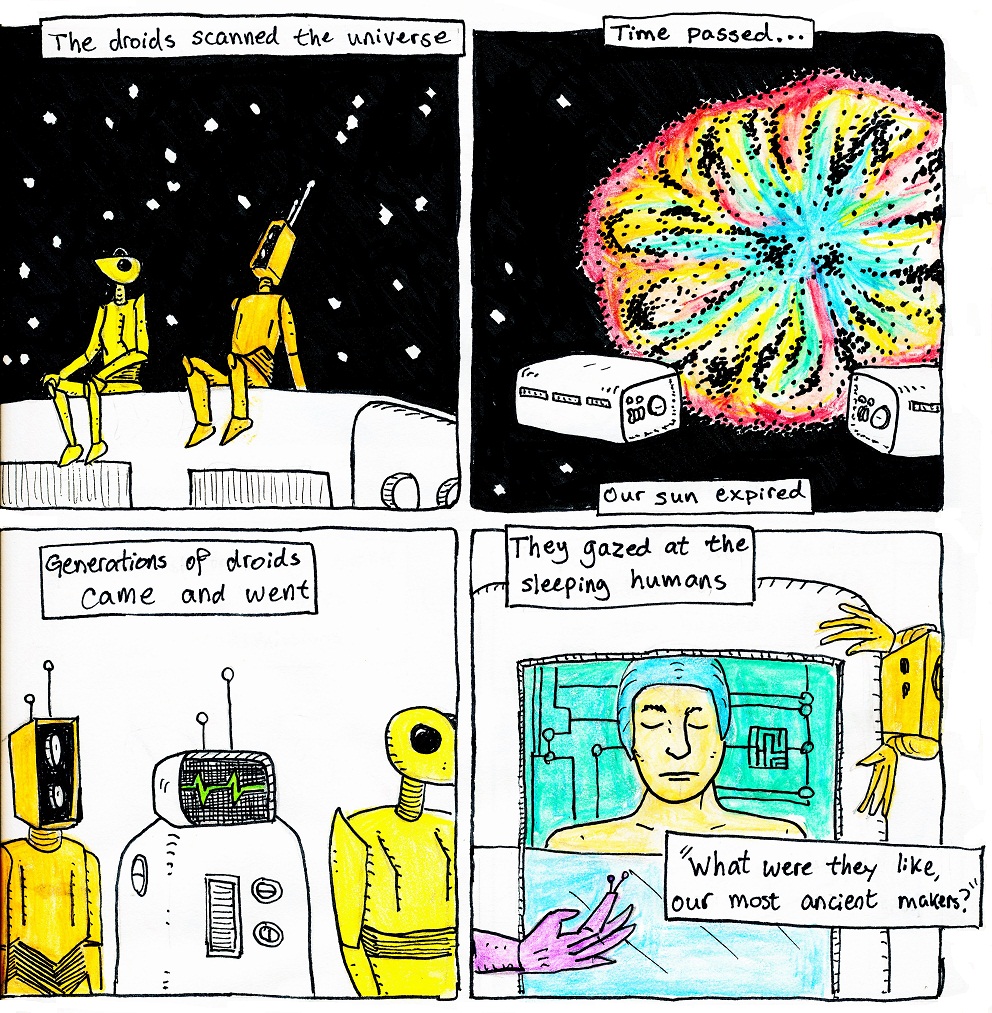 The droids scanned the universe
Time passed...
Our sun expired
Generations of droids
came and went
They gazed at the
sleeping humans
"What were they like,
our most ancient makers?"